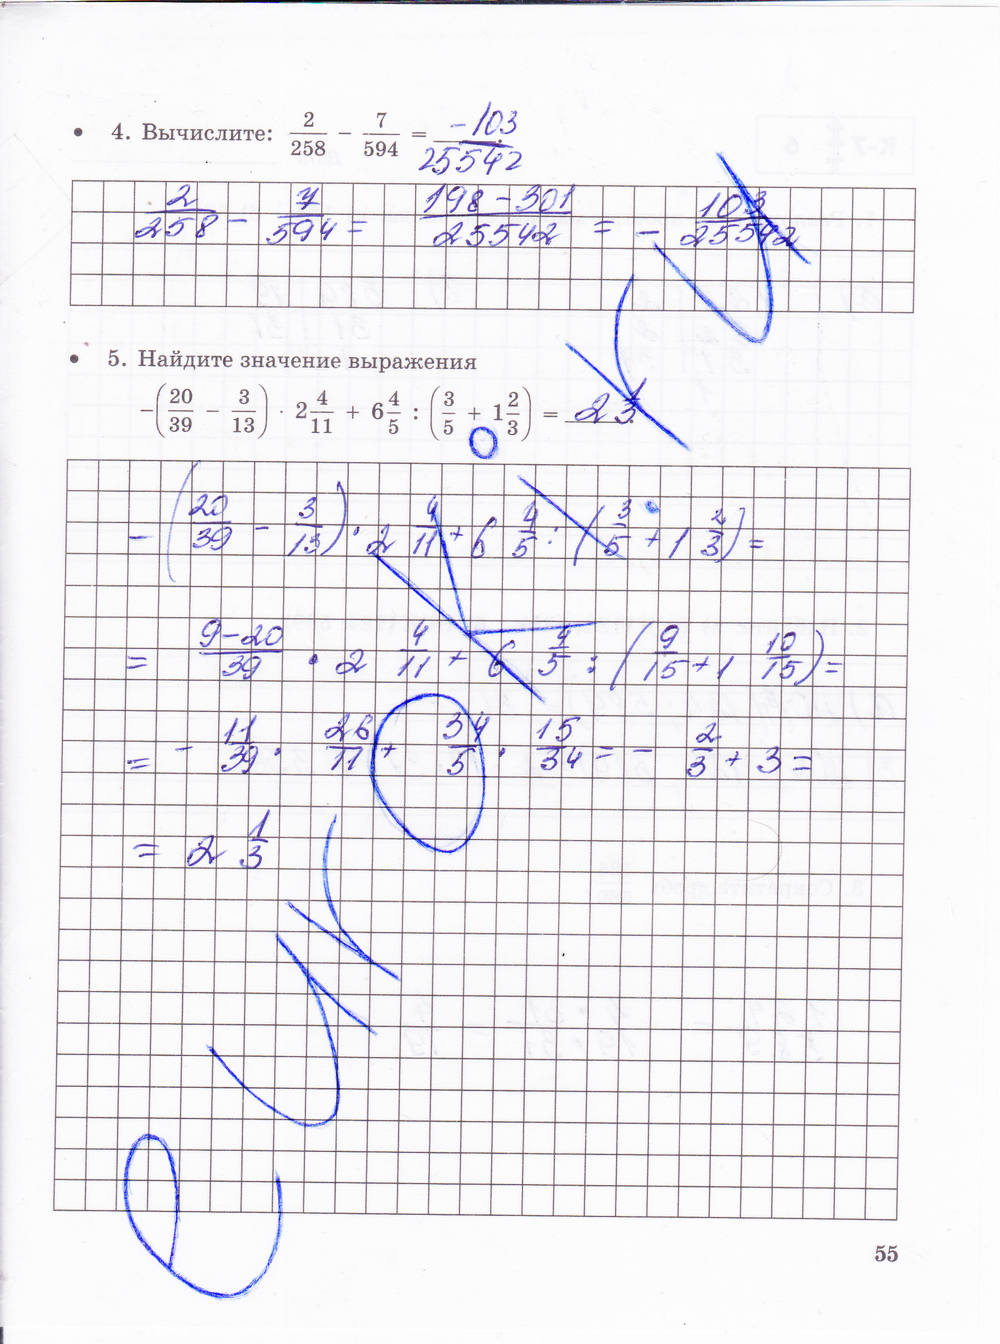 • 4. Вычислите: 2/258 − 7/594 = −103/25542
2/258 − 7/594 = 198 − 301/25542 = − 103/25542
• 5. Найдите значение выражения
−(20/39 − 3/13) · 2 4/11 + 6 4/5 : (3/5 + 1 2/3) = 2 1/3
− (20/39 − 3/13) · 2 4/11 + 6 4/5 : (3/5 + 1 2/3) =
= 9−20/39 · 2 4/11 + 6 4/5 : (9/15 + 1 10/15) =
= − 11/39 · 26/11 + 34/5 · 15/34 = − 2/3 + 3 =
= 2 1/3
55